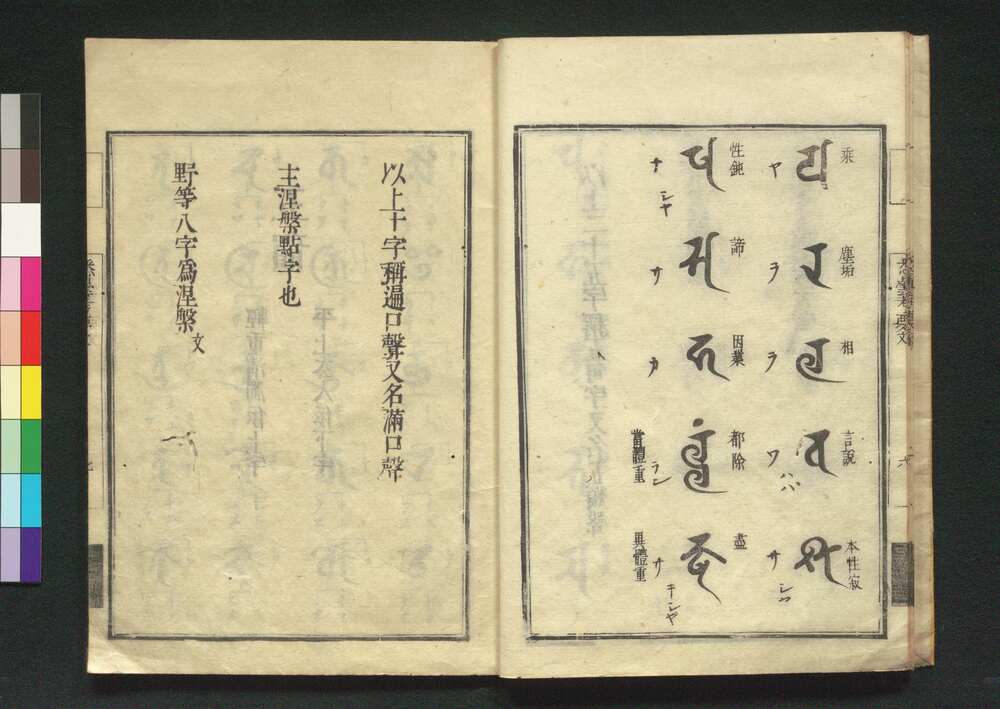 乘
𑖧
ヤ
塵垢
𑖨
ラ
相
𑖩
ラ
言説
𑖪
ワ
本性寂
𑖫
サ
性鈍
𑖬
シヤ
諦
𑖭
サ
因業
𑖮
カ
都除
𑖩𑖿𑖩𑖽
ラン
當體重
盡
𑖎𑖿𑖬
サ
キシヤ
異體重
以上十字稱遍口聲又名滿口聲
主涅槃點字也
野等八字爲涅槃文